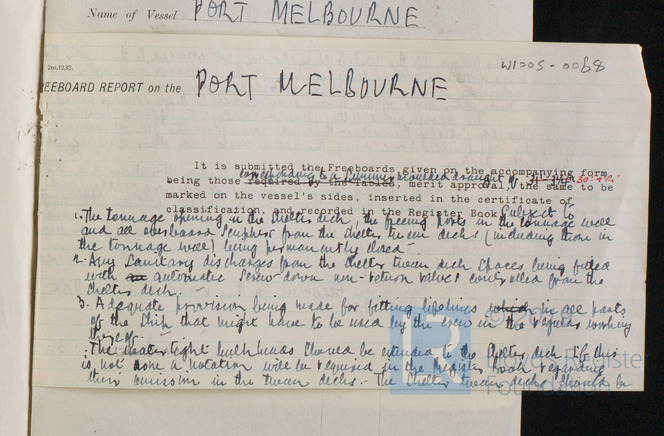 Name of Vessel PORT MELBOURNE
W1005-0068
2m.12.32.
EEBOARD REPORT on the PORT MELBOURNE
It is submitted the Freeboards given on the accompanying form,
corresponding to a summer moulded draught of
being those required by the Tables, merit approval, the same to be
marked on the vessel's sides, inserted in the certificate of
classification, and recorded in the Register Book Subject to
1. The tonnage opening in the shelter deck, the freeing ports in the tonnage well
and all overboard scuppers from the shelter tween decks (including those in
the tonnage well) being permanently closed -
2. Any Sanitary discharges from the shelter tween deck spaces being fitted
with automatic screw down non-return valves controlled from the
shelter deck. -
3. Adequate provision being made for fitting lifelines which in all parts
of the ship that might have to be used by the crew in the regular working
thereof.
The watertight bulkheads should be extended to the shelter deck. If this
is not done a notation will be required in the Register Book regarding
their omission in the tween decks. The shelter tween decks should be
LR
Lloyd's Register
Foundation